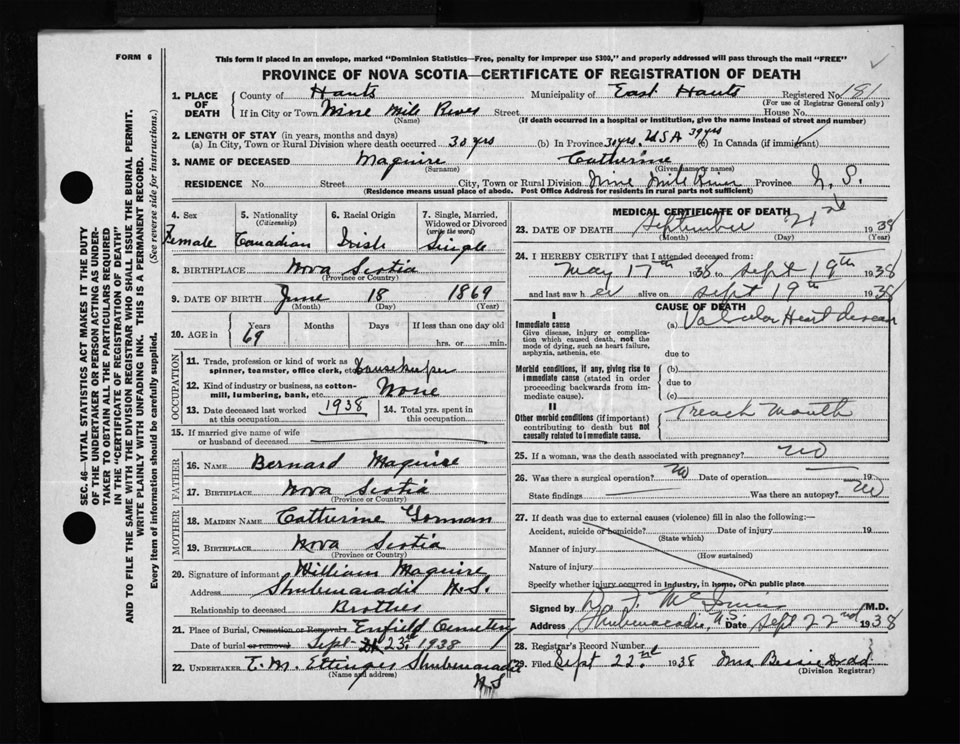 FORM 6
This form if placed in an envelope, marked "Dominion Statistics—Free, penalty for improper use $300," and properly addressed will pass through the mail "FREE"
PROVINCE OF NOVA SCOTIA—CERTIFICATE OF REGISTRATION OF DEATH
1. PLACE OF DEATH County of Hants Municipality of East Hants Registered No. 181
(For use of Registrar General only)
If in City or Town Nine Mile River Street House No.
(Name) (If death occurred in a hospital or institution, give the name instead of street and number)
2. LENGTH OF STAY (in years, months and days)
(a) In City, Town or Rural Division where death occurred 30 yrs (b) In Province 30 yrs. USA 39 yrs (c) In Canada (if immigrant)
3. NAME OF DECEASED Maguire Catherine
(Surname) (Given name or names)
RESIDENCE No. Street City, Town or Rural Division Nine Mile River Province N. S.
(Residence means usual place of abode. Post Office Address for residents in rural parts not sufficient)
4. Sex 5. Nationality 6. Racial Origin 7. Single, Married, Widowed or Divorced
(Citizenship) (write the word)
Female Canadian Irish Single
8. BIRTHPLACE Nova Scotia
(Province or Country)
9. DATE OF BIRTH June 18 1869
(Month) (Day) (Year)
10. AGE in Years Months Days If less than one day old
69 hrs. or min.
OCCUPATION
11. Trade, profession or kind of work as spinner, teamster, office clerk, etc. Housekeeper
12. Kind of industry or business, as cotton-mill, lumbering, bank, etc. None
13. Date deceased last worked at this occupation 1938 14. Total yrs. spent in this occupation
15. If married give name of wife or husband of deceased
FATHER
16. NAME Bernard Maguire
17. BIRTHPLACE Nova Scotia
(Province or Country)
MOTHER
18. MAIDEN NAME Catherine Gorman
19. BIRTHPLACE Nova Scotia
(Province or Country)
20. Signature of informant William Maguire
Address Shubenacadie N.S.
Relationship to deceased Brother
21. Place of Burial, Cremation or Removal Enfield Cemetery
Date of burial or removal Sept 23 1938
22. UNDERTAKER E. M. Ettinger Shubenacadie
(Name and address) N S
MEDICAL CERTIFICATE OF DEATH
23. DATE OF DEATH September 21st 1938
(Month) (Day) (Year)
24. I HEREBY CERTIFY that I attended deceased from:
May 17th 1938 to Sept 19th 1938
and last saw her alive on Sept 19th 1938
CAUSE OF DEATH
I
Immediate cause
Give disease, injury or complication which caused death, not the mode of dying, such as heart failure, asphyxia, asthenia, etc.
(a) Valvular Heart disease
due to
Morbid conditions, if any, giving rise to immediate cause (stated in order proceeding backwards from immediate cause).
(b)
due to
(c)
II
Other morbid conditions (if important) contributing to death but not causally related to immediate cause.
Trench Mouth
25. If a woman, was the death associated with pregnancy? no
26. Was there a surgical operation? no Date of operation 19
State findings Was there an autopsy? no
27. If death was due to external causes (violence) fill in also the following:—
Accident, suicide or homicide? Date of injury 19
(State which)
Manner of injury
(How sustained)
Nature of injury
Specify whether injury occurred in industry, in home, or in public place
Signed by M.D.
Address Shubenacadie, N.S. Date Sept 22nd 1938
28. Registrar's Record Number
29. Filed Sept 22nd 1938 Mrs Bessie Dodd
(Division Registrar)
SEC. 46—VITAL STATISTICS ACT MAKES IT THE DUTY
OF THE UNDERTAKER OR PERSON ACTING AS UNDER-
TAKER TO OBTAIN ALL THE PARTICULARS REQUIRED
IN THE "CERTIFICATE OF REGISTRATION OF DEATH"
AND TO FILE THE SAME WITH THE DIVISION REGISTRAR WHO SHALL ISSUE THE BURIAL PERMIT.
WRITE PLAINLY WITH UNFADING INK. THIS IS A PERMANENT RECORD.
Every item of information should be carefully supplied. (See reverse side for instructions.)